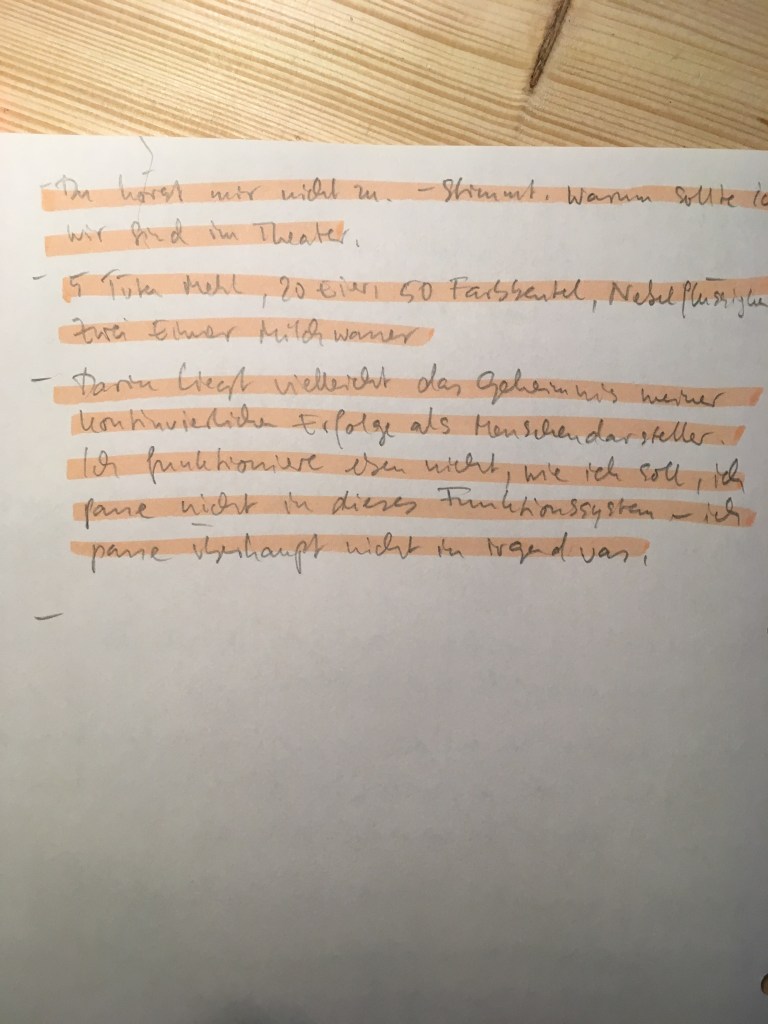 - Du hörst mir nicht zu. - Stimmt. Warum sollte ic
wir sind im Theater.
- 5 Tüten Mehl, 20 Eier, 50 Farbbeutel, Nebelflüssigke
Zwei Eimer Milchwasser
- Darin liegt vielleicht das Geheimnis meiner
kontinuierlichen Erfolge als Menschendarsteller.
Ich funktioniere eben nicht, wie ich soll, ich
passe nicht in dieses Funktionssystem - ich
passe überhaupt nicht in irgendwas.
-